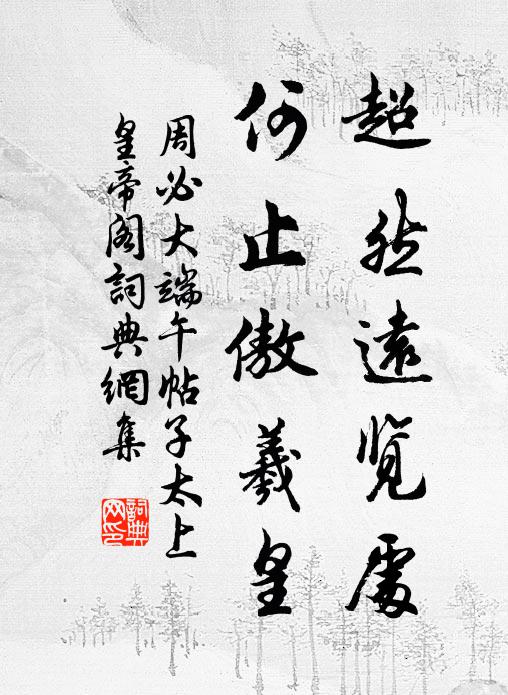 超然遠覽處
何止傲羲皇
周必大端午帖子太上
皇帝閣詞典網集
詞典
网印